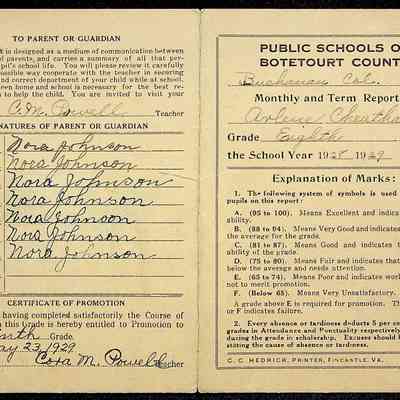 TO PARENT OR GUARDIAN
is designed as a medium of communication between
parents, and carries a summary of all that per-
pil's school life. You will please review it carefully
possible way cooperate with the teacher in securing
and correct department of your child while at school.
een home and school is necessary for the best re-
to help the child. You are invited to visit your
C. M. Powell Teacher
NATURES OF PARENT OR GUARDIAN
Nora Johnson
Nora Johnson
Nora Johnson
Nora Johnson
Nora Johnson
Nora Johnson
Nora Johnson
CERTIFICATE OF PROMOTION
having completed satisfactorily the Course of
this Grade is hereby entitled to Promotion to
Grade.
ay 23, 1929
Cora M. Powell Teacher
PUBLIC SCHOOLS O
BOTETOURT COUNT
Buchanan Col.
Monthly and Term Report
Arlene Cheatha
Grade Eighth
the School Year 1928 1929
Explanation of Marks:
1. The following system of symbols is used
pupils on this report:
A. (95 to 100). Means Excellent and indic
ability.
B. (88 to 94). Means Very Good and indicates
the average for the grade.
C. (81 to 87). Means Good and indicates t
ability of the grade.
D. (75 to 80). Means Fair and indicates that
below the average and needs attention.
E. (65 to 74). Means Poor and indicates work
not to merit promotion.
F. (Below 65). Means Very Unsatisfactory.
A grade above E is required for promotion. T
or F indicates failure.
2. Every absence or tardiness deducts 5 per ce
grades in Attendance and Punctuality respectively
during the grade in scholarship. Excuses should b
stating the cause of absence or tardiness.
C. C. HEDRICK, PRINTER, FINCASTLE, VA.